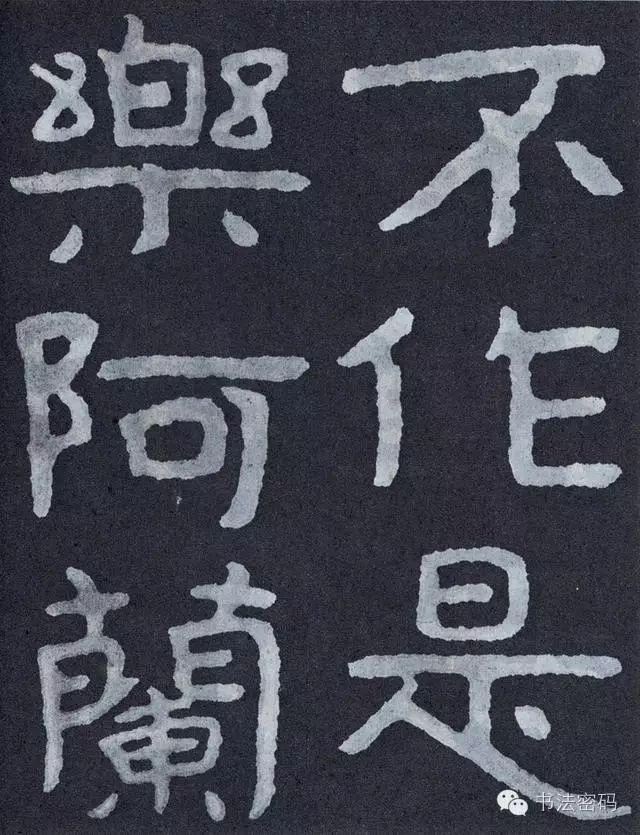 不作是
樂阿蘭
书法密码